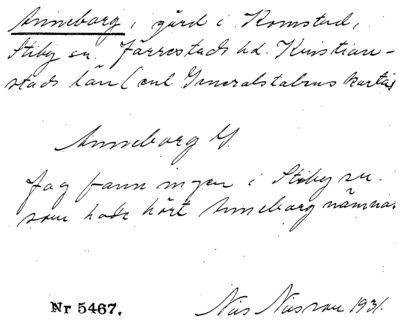 Anneborg, gård i Komstad,
Stiby sn. Järrestads hd. Kristian-
stads län (enl. Generalstabens karta)
Anneborg G.
Jag fann ingen i Stiby sn.
som hade hört Anneborg nämnas
Nr 5467.
Nils 1931.